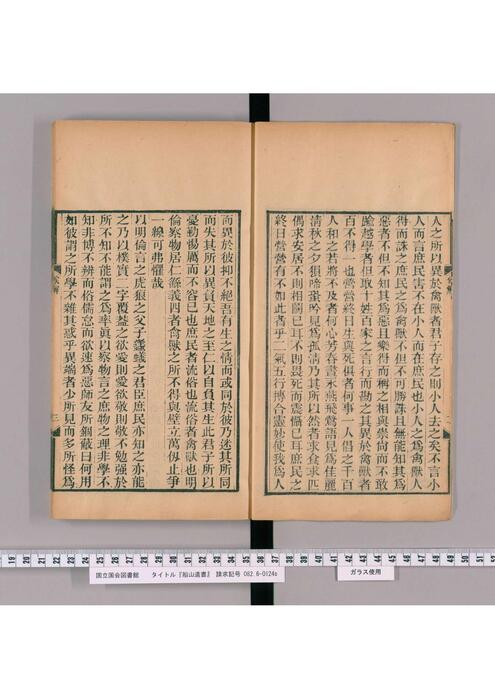 人之所以異於禽獸者君子存之則小人去之矣不言小
人而言庶民害不在小人而在庶民也小人之爲禽獸人
得而誅之庶民之爲禽獸不但不可勝誅且無能知其爲
惡者不但不知其爲惡且樂得而稱之相與崇尚而不敢
踰越學者但取十姓百家之言行而勘之其異於禽獸者
百不得一也營營終日生與死俱者何事一人倡之千百
人和之若將不及者何心芳春晝永燕飛鶯語見爲佳麗
清秋之夕猿啼蛩吟見爲孤清乃其所以然者求食求匹
偶求安居不則相鬭已耳不則畏死而震懾已耳庶民之
終日營營有不如此者乎二氣五行摶合靈妙使我爲人
而異於彼抑不絕吾有生之情而或同於彼乃迷其所同
而失其所以異負天地之至仁以自負其生此君子所以
憂勤惕厲而不容已也庶民者流俗也流俗者禽獸也明
倫察物居仁繇義四者禽獸之所不得與壁立萬仞止爭
一線可弗懼哉
以明倫言之虎狼之父子螻蟻之君臣庶民亦知之亦能
之乃以樸實二字覆葢之欲愛則愛欲敬則敬不勉强於
所不知不能謂之爲率眞以察物言之庶物之理非學不
知非博不辨而俗儒怠而欲速爲惡師友所錮蔽曰何用
如彼謂之所學不雜其惑乎異端者少所見而多所怪爲
国立国会図書館 タイトル『船山遺書』 請求記号 082.6-0124o
ガラス使用